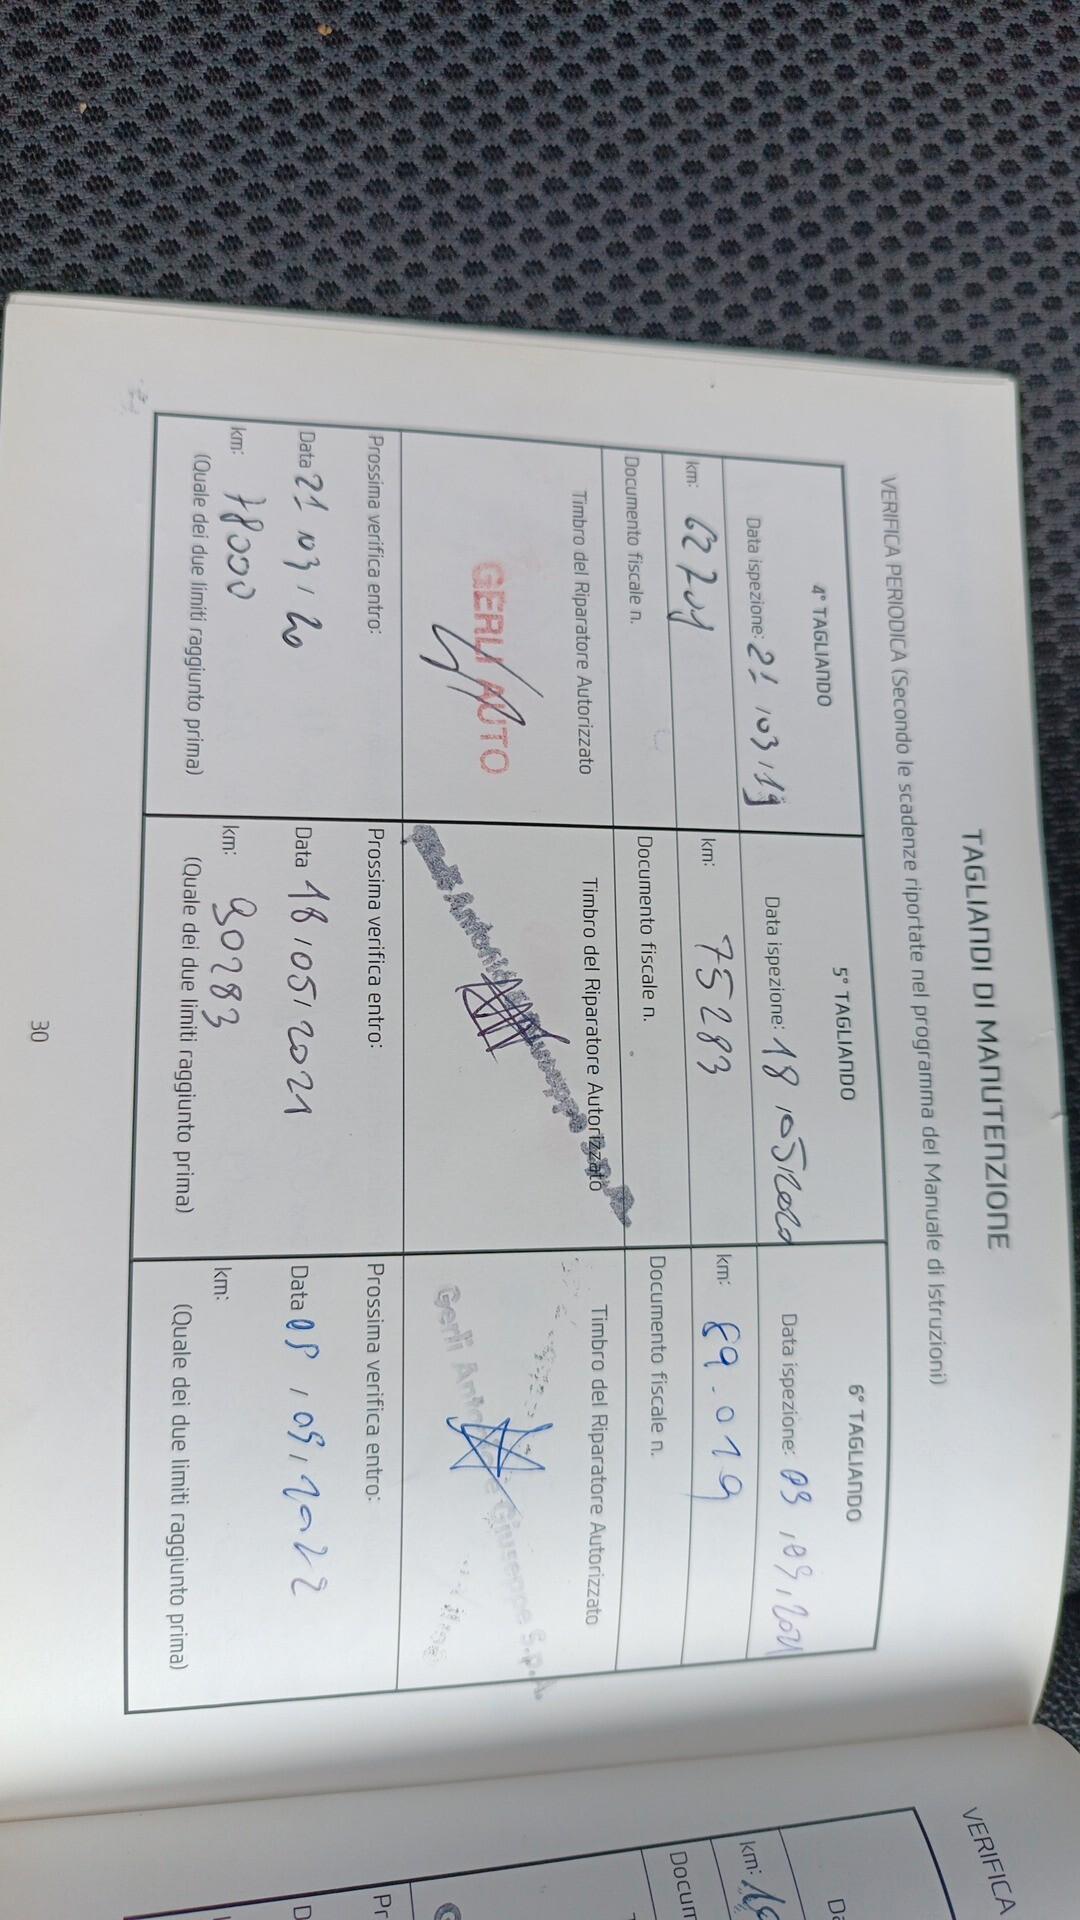 TAGLIANDI DI MANUTENZIONE
VERIFICA PERIODICA (Secondo le scadenze riportate nel programma del Manuale di Istruzioni)
4° TAGLIANDO
Data ispezione: 21/03/19
km: 62701
Documento fiscale n.
Timbro del Riparatore Autorizzato
GERLI AUTO
Prossima verifica entro:
Data 21/03/20
km: 78000
(Quale dei due limiti raggiunto prima)
5° TAGLIANDO
Data ispezione: 18/05/2020
km: 75283
Documento fiscale n.
Timbro del Riparatore Autorizzato
Prossima verifica entro:
Data 18/05/2021
km: 90283
(Quale dei due limiti raggiunto prima)
6° TAGLIANDO
Data ispezione: 09/09/2021
km: 89.019
Documento fiscale n.
Timbro del Riparatore Autorizzato
Gerli Giuseppe S.p.A.
Prossima verifica entro:
Data 09/09/2022
km:
(Quale dei due limiti raggiunto prima)
30
VERIFICA
Da
km:
Docum
Pr
D